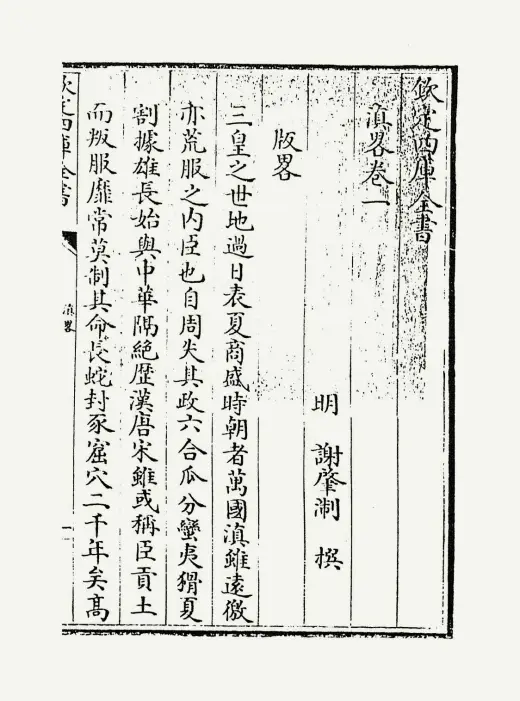 欽定四庫全書
滇畧卷一
明 謝肇淛 撰
版畧
三皇之世地過日表夏商盛時朝者萬國滇雖遠徼
亦荒服之内臣也自周失其政六合瓜分蠻夷猾夏
割據雄長始與中華隔絶歴漢唐宋雖或稱臣貢土
而叛服靡常莫制其命長蛇封豕窟穴二千年矣髙
欽定四庫全書
滇畧
一